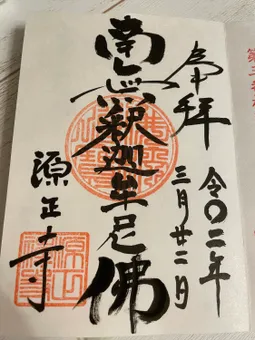 奉拝
令〇二年
三月廿二日
南無釋迦牟尼佛
源正寺